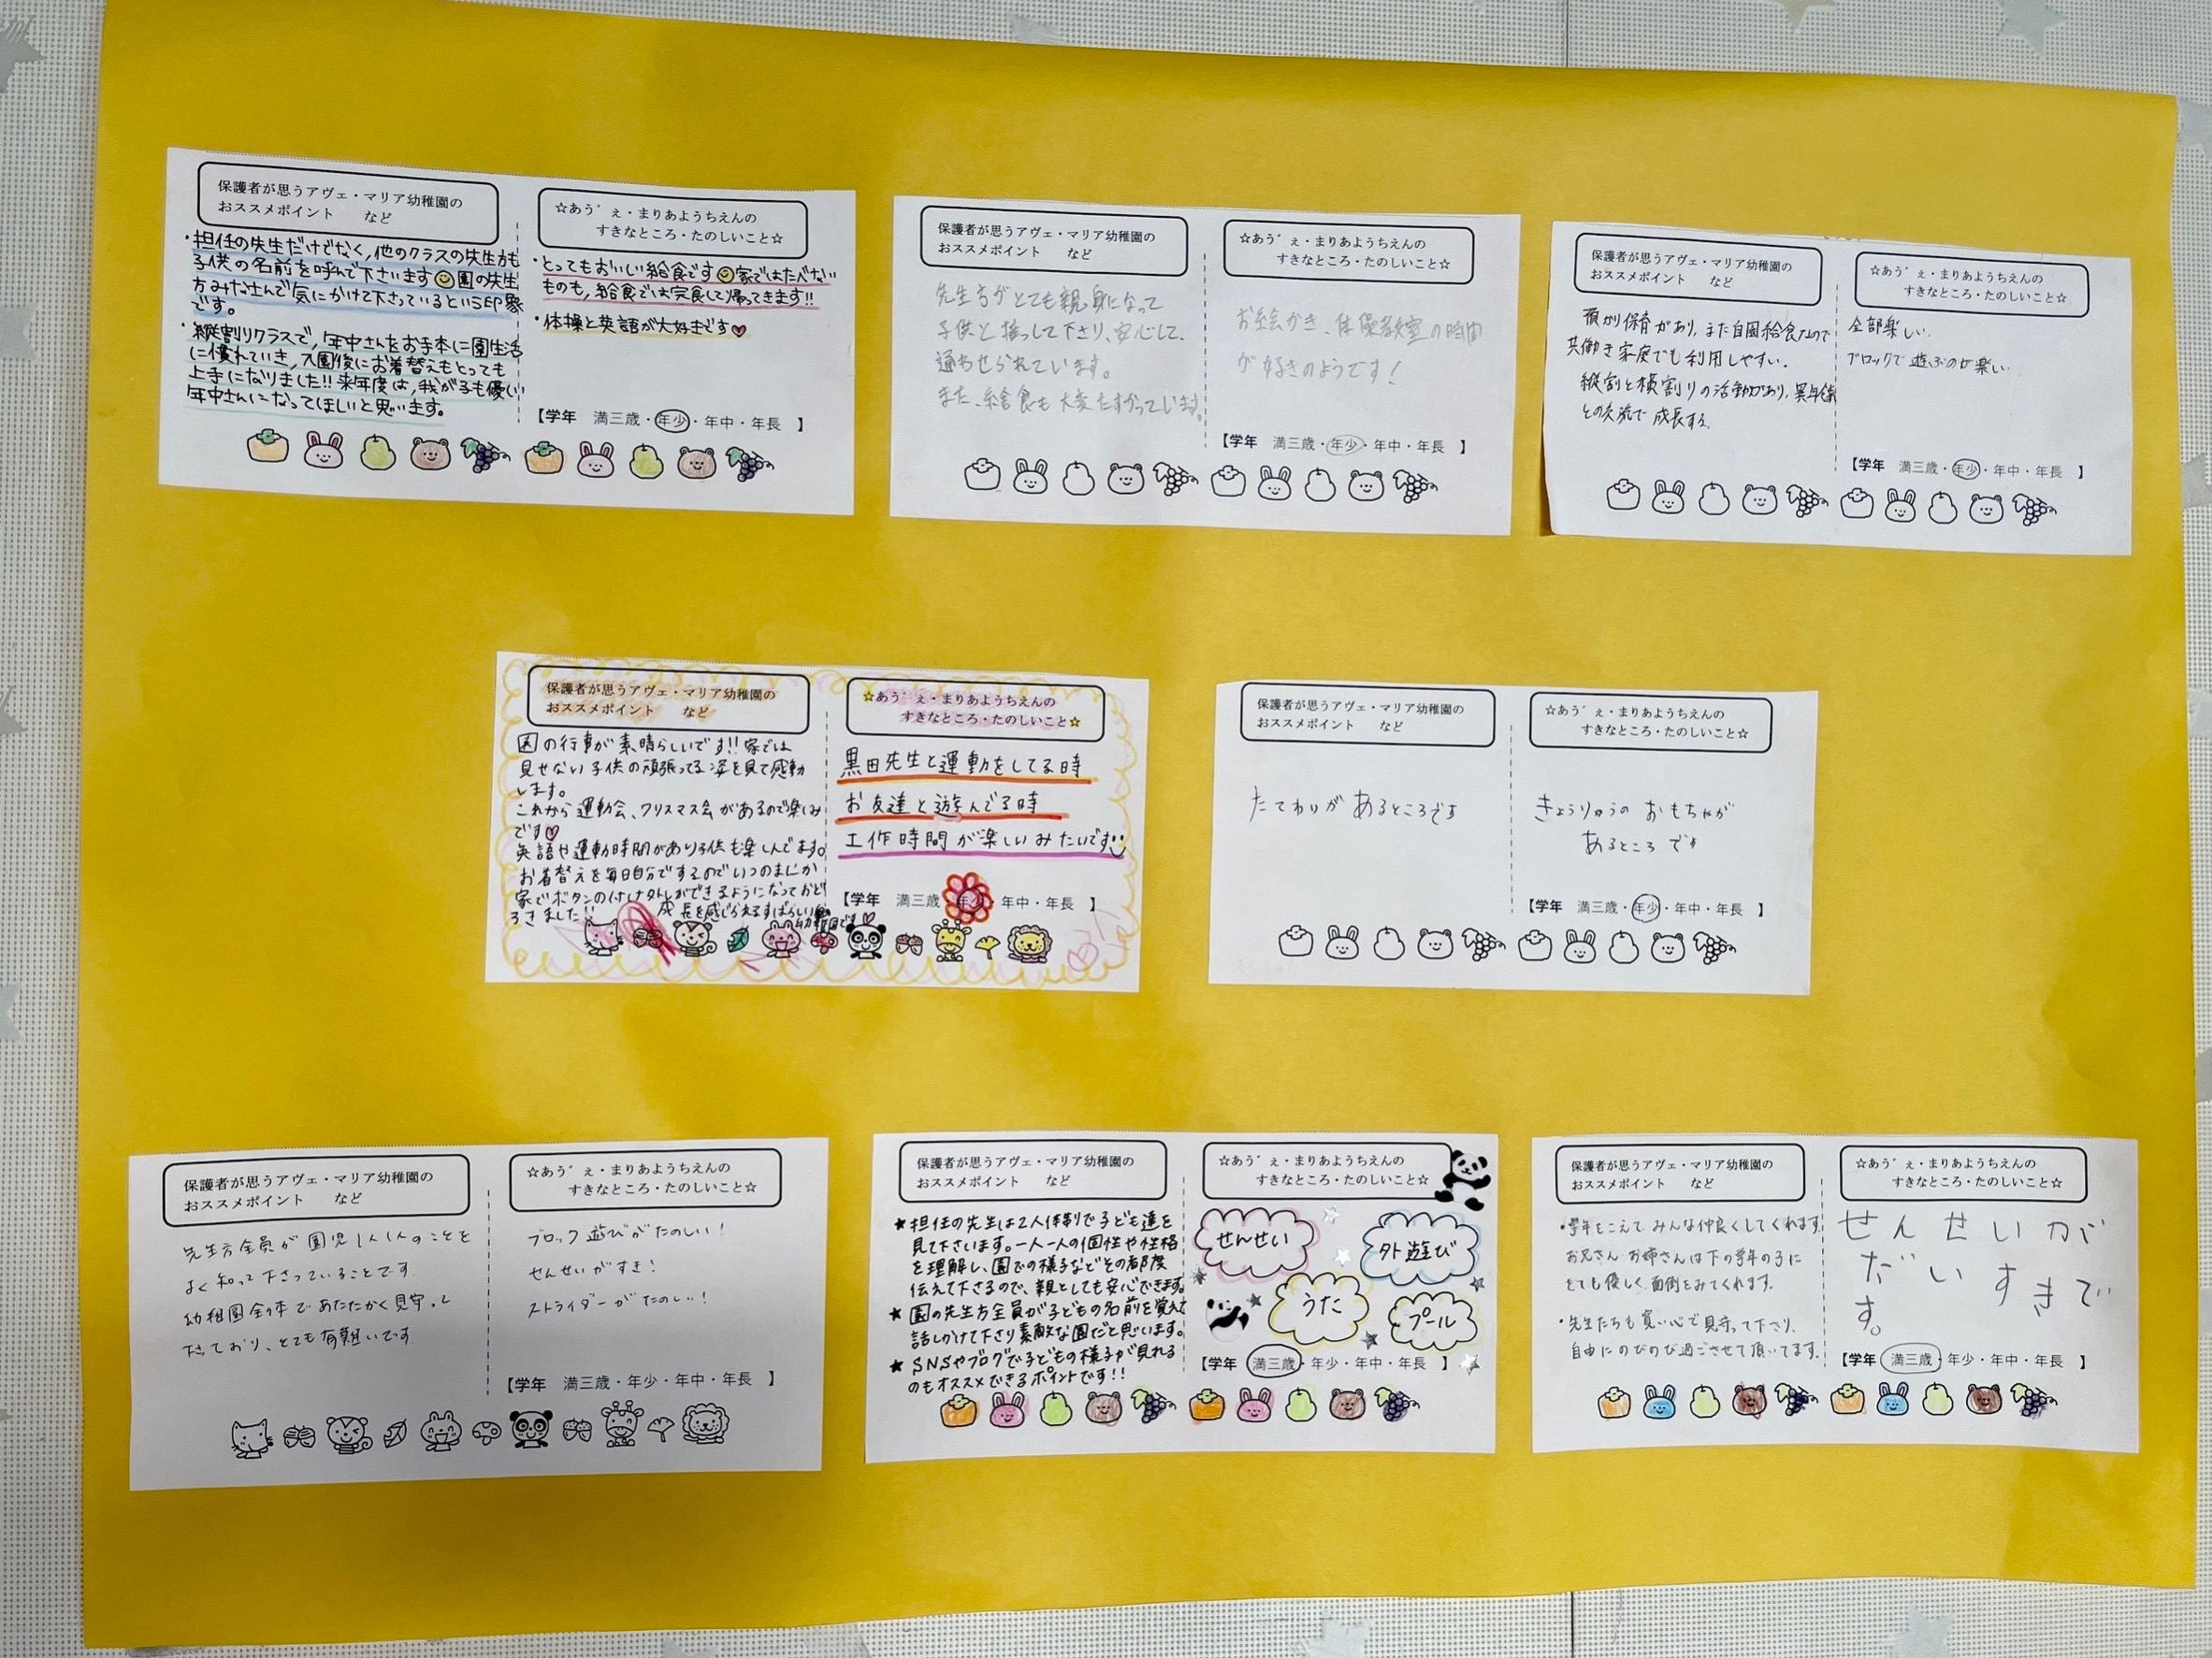 保護者が思うアヴェ・マリア幼稚園の
おススメポイント　　など
・担任の先生だけでなく、他のクラスの先生方も
子供の名前を呼んで下さいます 園の先生
方みなさんで気にかけて下さっているという印象
です。
・縦割りクラスで、年中さんをお手本に園生活
に慣れていき、入園後にお着替えもとっても
上手になりました!! 来年度は、我が子も優しい
年中さんになってほしいと思います。
☆あう゛ぇ・まりあようちえんの
すきなところ・たのしいこと☆
・とってもおいしい給食です 家ではたべない
ものも、給食では完食して帰ってきます!!
・体操と英語が大好きです♡
【学年　満三歳・年少・年中・年長　】
保護者が思うアヴェ・マリア幼稚園の
おススメポイント　　など
先生方がとても親身になって
子供と接して下さり、安心して
通わせられています。
また、給食も大変たすかっています。
☆あう゛ぇ・まりあようちえんの
すきなところ・たのしいこと☆
お絵かき、体操教室の時間
が好きのようです!
【学年　満三歳・年少・年中・年長　】
保護者が思うアヴェ・マリア幼稚園の
おススメポイント　　など
預かり保育があり、また自園給食なので
共働き家庭でも利用しやすい。
縦割と横割りの活動があり、異年齢
との交流で成長する。
☆あう゛ぇ・まりあようちえんの
すきなところ・たのしいこと☆
全部楽しい。
ブロックで遊ぶのが楽しい
【学年　満三歳・年少・年中・年長　】
保護者が思うアヴェ・マリア幼稚園の
おススメポイント　　など
園の行事が素晴らしいです!! 家では
見せない子供の頑張ってる姿を見て感動
します。
これから運動会、クリスマス会があるので楽しみ
です♡
英語や運動時間があり子供も楽しんでます。
お着替えを毎日自分でするのでいつのまにか
家でボタンの付け外しができるようになっておど
ろきました!! 成長を感じられるすばらしい幼稚園です
☆あう゛ぇ・まりあようちえんの
すきなところ・たのしいこと☆
黒田先生と運動をしてる時
お友達と遊んでる時
工作時間が楽しいみたいです
【学年　満三歳・年少・年中・年長　】
保護者が思うアヴェ・マリア幼稚園の
おススメポイント　　など
たてわりがあるところです
☆あう゛ぇ・まりあようちえんの
すきなところ・たのしいこと☆
きょうりゅうの おもちゃが
あるところ です
【学年　満三歳・年少・年中・年長　】
保護者が思うアヴェ・マリア幼稚園の
おススメポイント　　など
先生方全員が園児1人1人のことを
よく知って下さっていることです。
幼稚園全体であたたかく見守って
下さっており、とても有難いです。
☆あう゛ぇ・まりあようちえんの
すきなところ・たのしいこと☆
ブロック遊びがたのしい!
せんせいがすき!
ストライダーがたのしい!
【学年　満三歳・年少・年中・年長　】
保護者が思うアヴェ・マリア幼稚園の
おススメポイント　　など
★担任の先生は2人体制で子ども達を
見て下さいます。一人一人の個性や性格
を理解し、園での様子などその都度
伝えて下さるので、親としても安心できます。
★園の先生方全員が子どもの名前を覚えて
話しかけて下さり素敵な園だと思います。
★SNSやブログで子どもの様子が見れる
のもオススメできるポイントです!!
☆あう゛ぇ・まりあようちえんの
すきなところ・たのしいこと☆
せんせい
外遊び
うた
プール
【学年　満三歳・年少・年中・年長　】
保護者が思うアヴェ・マリア幼稚園の
おススメポイント　　など
・学年をこえて みんな仲良くしてくれます。
お兄さん お姉さんは下の学年の子に
とても優しく、面倒をみてくれます。
・先生たちも寛い心で見守って下さり、
自由にのびのび過ごさせて頂いてます。
☆あう゛ぇ・まりあようちえんの
すきなところ・たのしいこと☆
せんせいが
だいすきで
す。
【学年　満三歳・年少・年中・年長　】